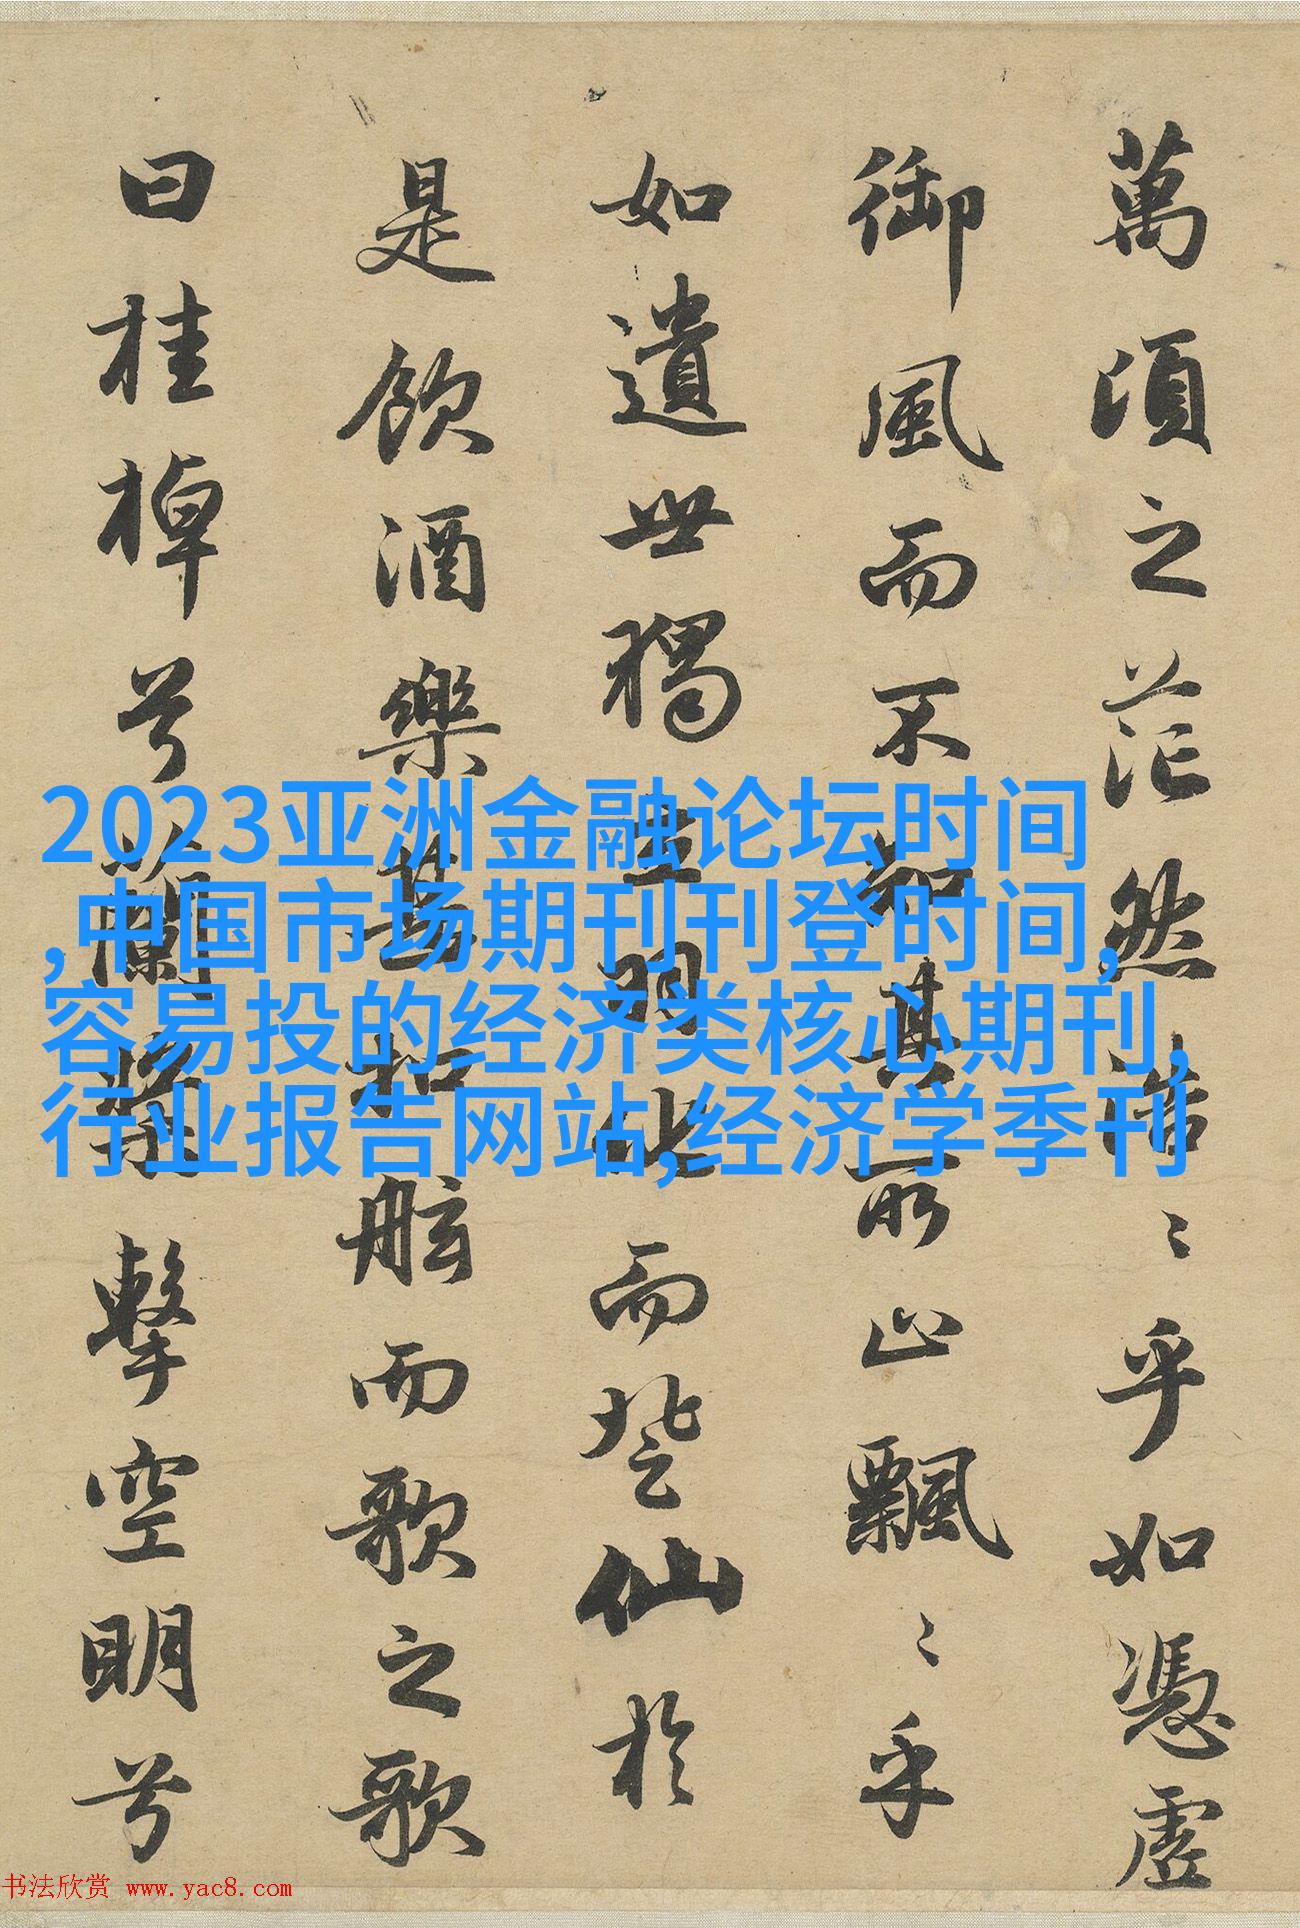 萬頃之茫然浩〻乎如憑虛
御風而不知其所止飄〻乎
如遺世獨立羽化而登仙於
是飲酒樂甚扣舷而歌之歌
曰桂棹兮蘭槳擊空明兮
2023亚洲金融论坛时间
,中国市场期刊刊登时间,
容易投的经济类核心期刊,
行业报告网站,经济学季刊
书法欣赏 www.yac8.com